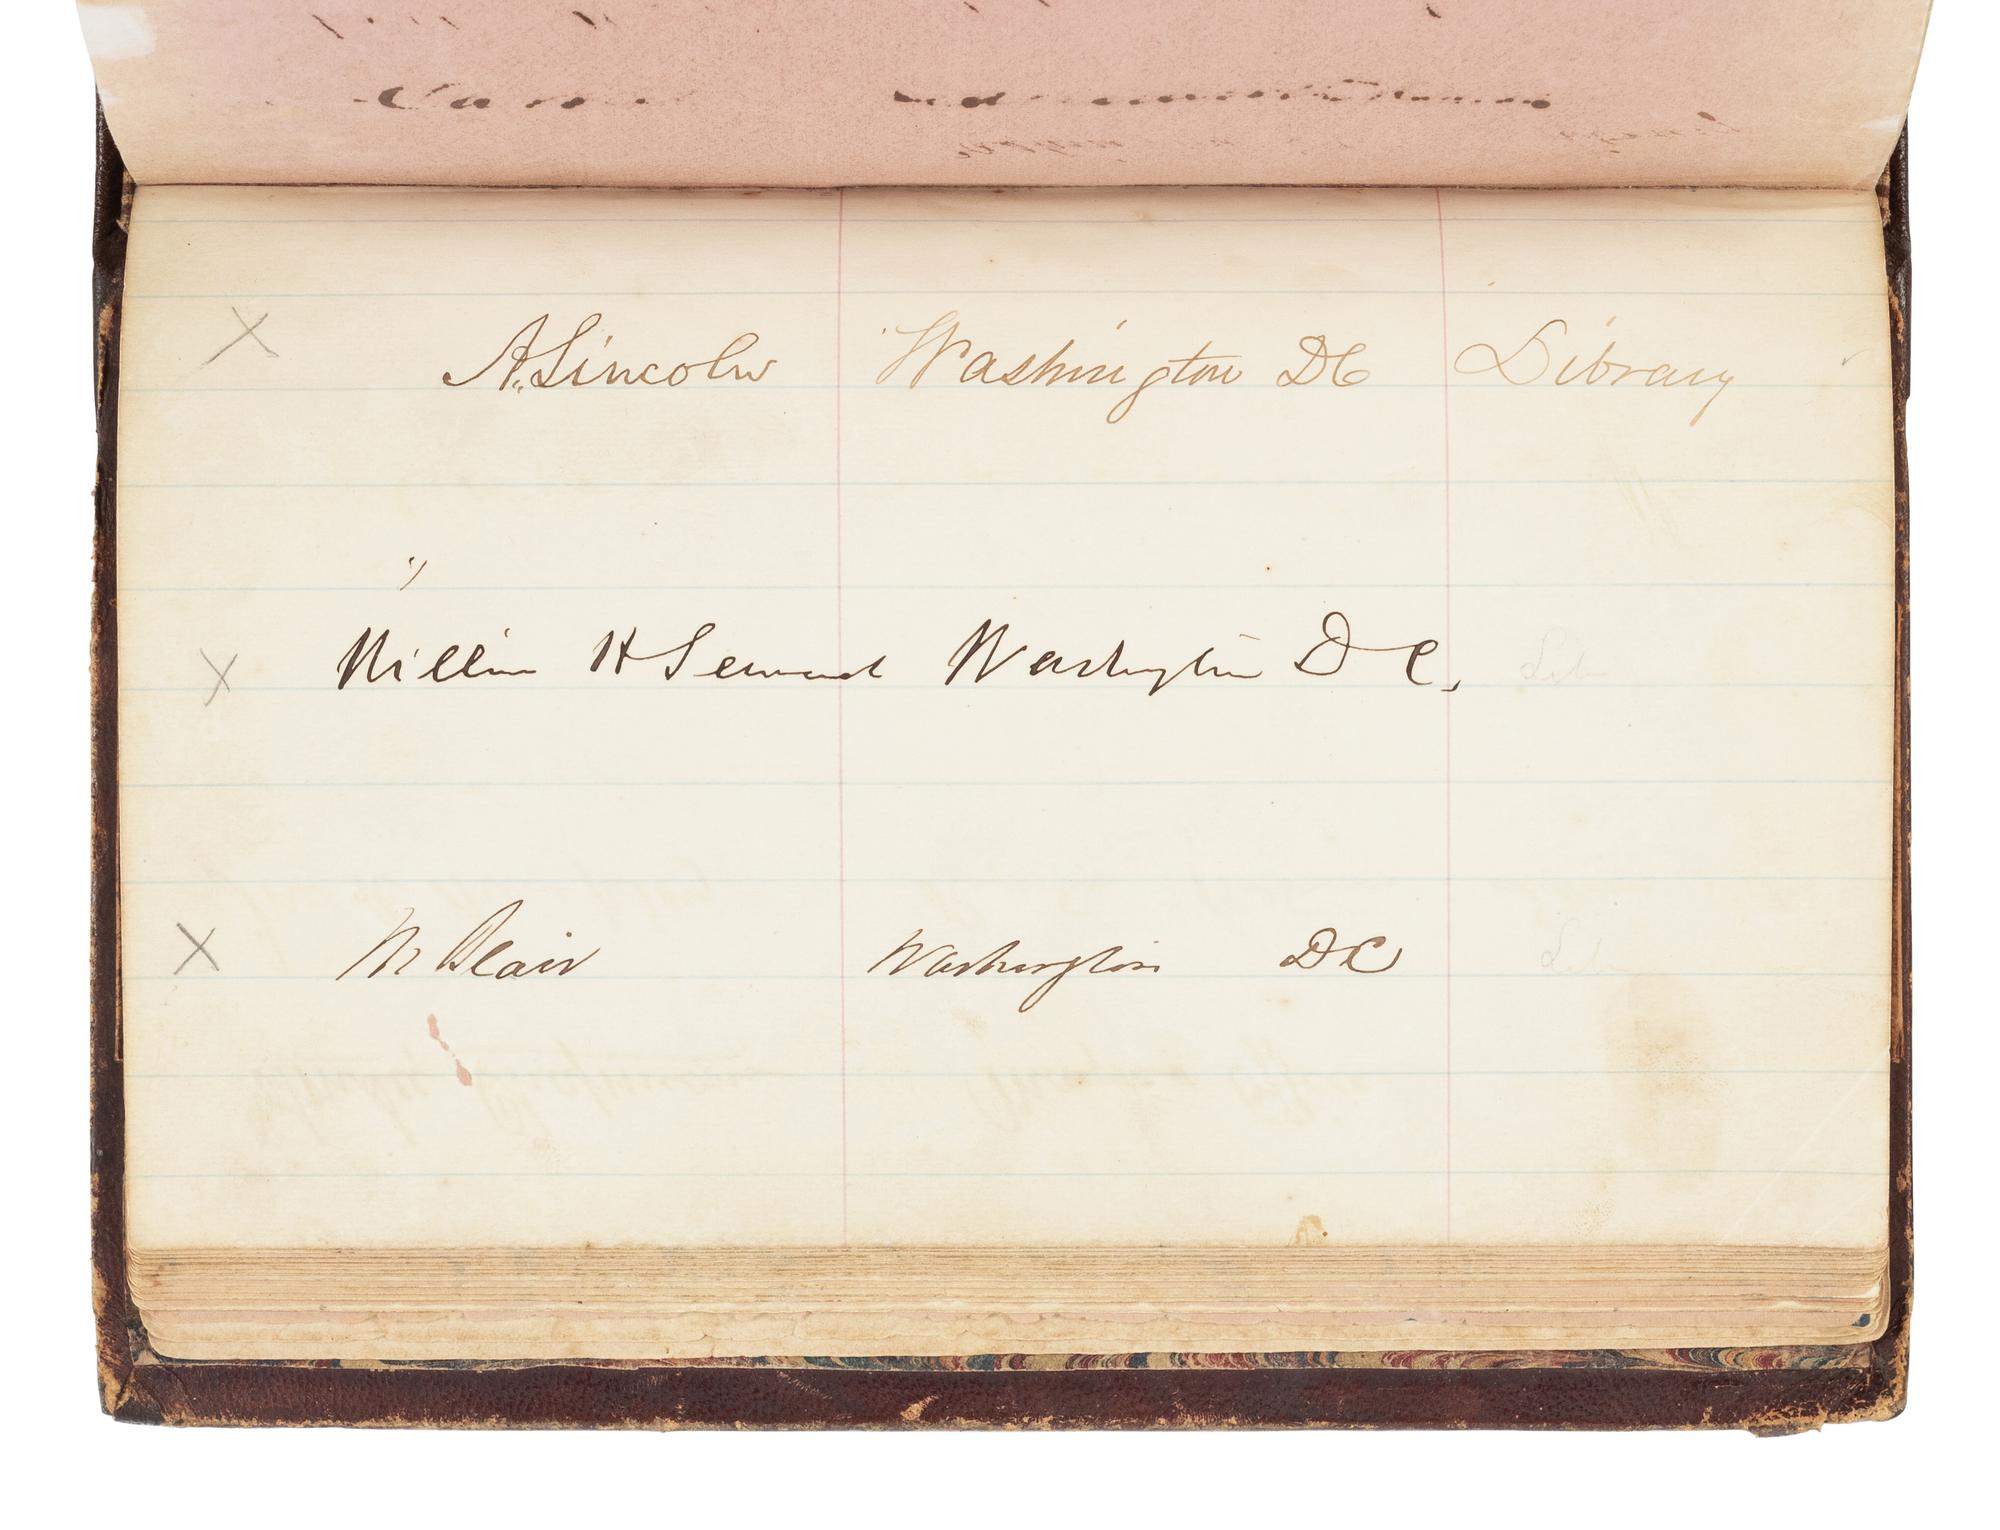 X A. Lincoln Washington DC Library
X William H Seward Washington D C.
X M Blair Washington DC